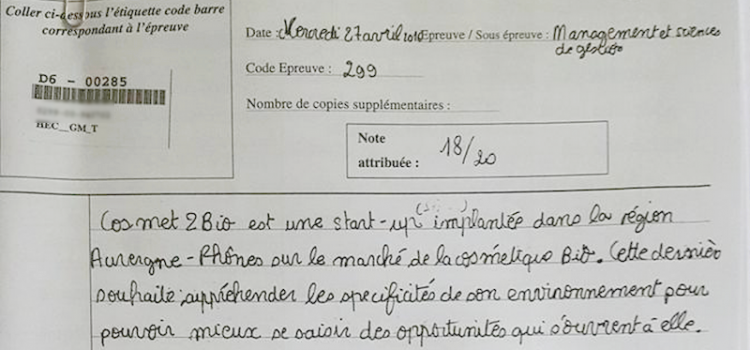 Coller ci-dessous l'étiquette code barre
correspondant à l'épreuve
D6 - 00285
HEC__GM_T
Date : Mercredi 27 avril 2016 Epreuve / Sous épreuve : Management et sciences
de gestion
Code Epreuve : 299
Nombre de copies supplémentaires :
Note
attribuée : 18/20
Cosmet 2Bio est une start-up implantée dans la région
Auvergne-Rhônes sur le marché de la cosmétique Bio. Cette dernièr
souhaite appréhender les specificités de son environnement pour
pouvoir mieux se saisir des opportunités qui s'ouvrent à elle.